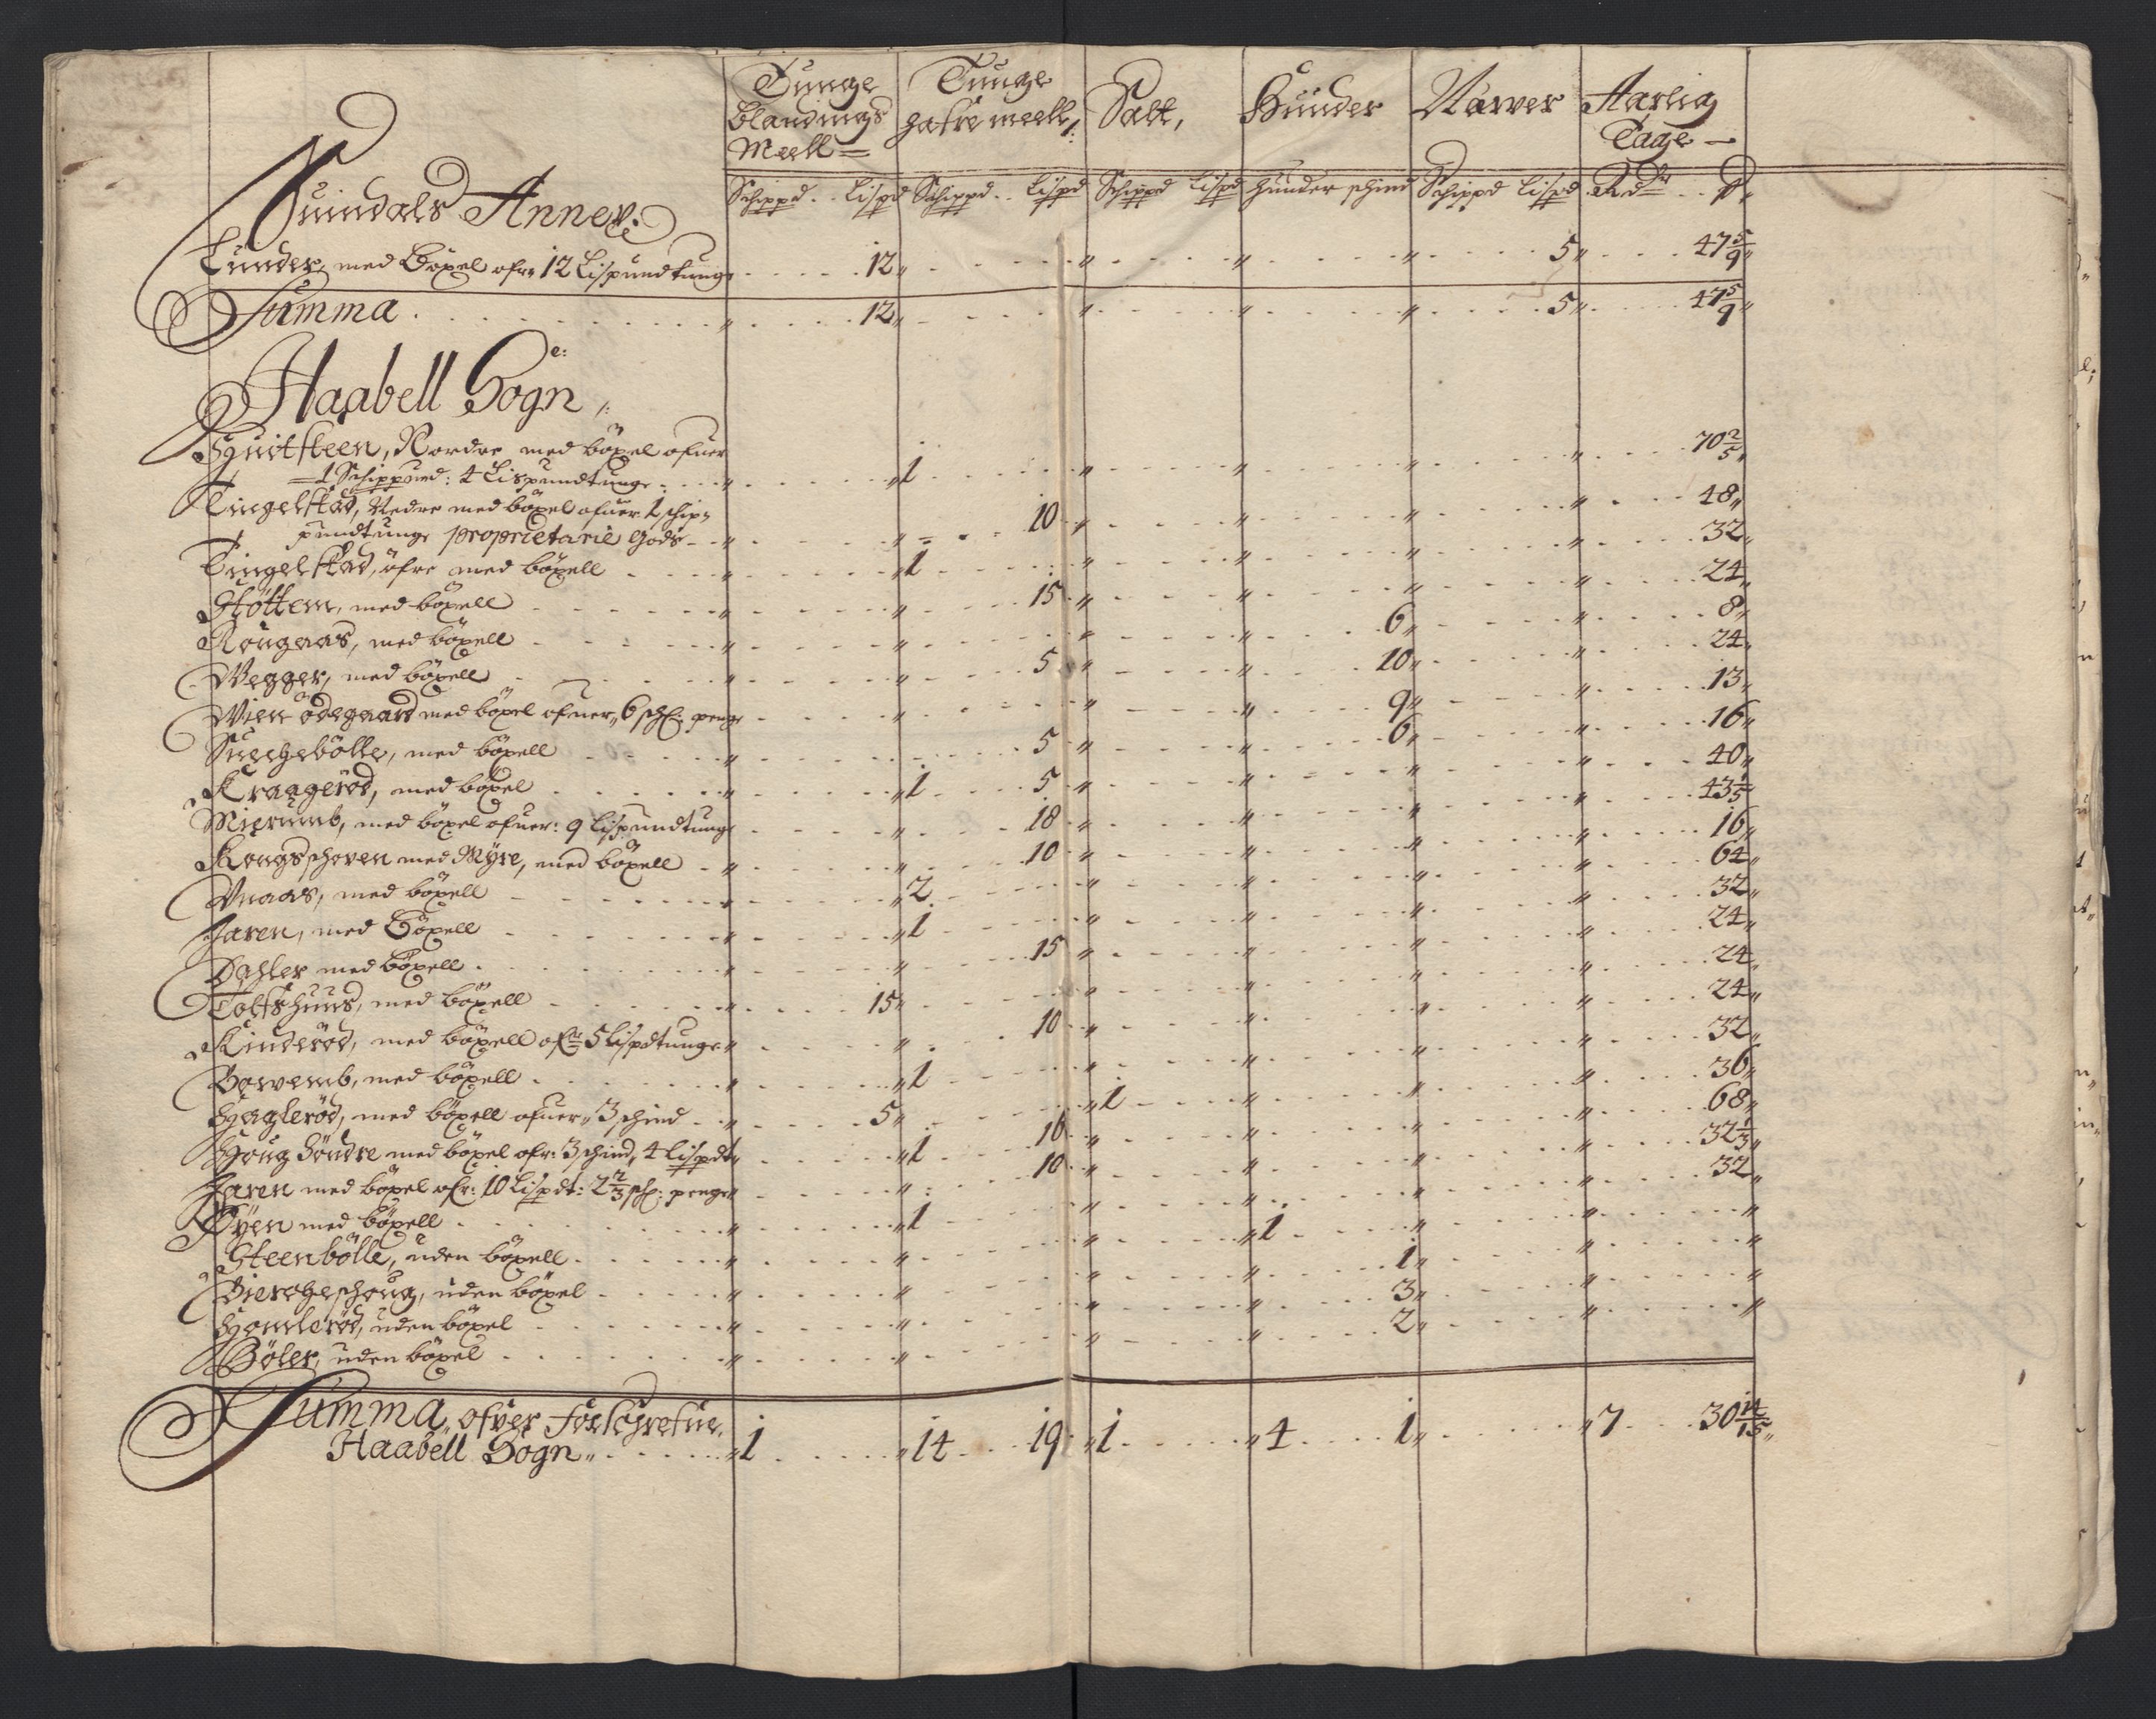 Tunge Blandings Meell = | Tunge hafre meell /: | Salt, | Hunder | Narver | Aarlig Tage —
Schippd .. Lispd | Schippd .. Lispd | Schippd Lispd | hunder schind | Schippd Lispd | Rdr .. ß
Quindals Annex:
Lunder, med Böxel ofr: 12 Lispundtung 12 „ „ „ 5 „ 47 5/9 „
Summa 12 „ „ „ „ 5 „ 47 5/9 „
Haabell Sogn,
Nordre med böxel ofuer
= 1 Schippund: 4 Lispundtunge „ „ 1 „ „ „ „ 70 2/5 „
Tingelstad, Nedre med böxel ofuer 1 schip=
pundtunge proprietarie Gods „ „ 10 „ „ „ „ 48 „
Tingelstad, öfre med böxell „ „ 1 „ „ „ „ 32 „
Stöttem, med böxell „ „ 15 „ „ „ „ 24 „
Rougaas, med böxell „ „ „ „ 6 „ „ 8 „
Wegger, med böxell „ „ 5 „ „ 10 „ „ 24 „
Wien ödegaard med böxel ofuer „ 6 sch: penge „ „ „ 9 „ „ 13 „
med böxell „ 5 „ „ 6 „ „ 16 „
Kraagerød, med böxel „ „ 1 5 „ „ „ „ 40 „
med böxel ofuer: 9 Lispundtung „ 18 „ „ „ „ 43 1/5 „
Kongsschoven med Myre, med böxell „ „ 10 „ „ „ „ 16 „
med böxell „ „ 2 „ „ „ „ 64 „
Jaren, med Böxell „ „ 1 „ „ „ „ 32 „
Dahler med böxell „ „ 15 „ „ „ „ 24 „
Tolfshuus, med böxell „ 15 „ „ „ „ „ 24 „
Kinderød, med böxell ofr 5 Lispdtunge „ „ 10 „ „ „ „ 24 „
med böxell „ „ 1 „ „ „ „ 32 „
Haglerød, med böxell ofuer „ 3 schind „ 5 „ „ 1 „ „ „ 36 „
Houg Söndre med böxel ofr: 3 schind, 4 Lispdt „ „ 1 16 „ „ „ „ 68 „
Jaren med böxel ofr: 10 Lispdt: 2 2/3 sch: penge „ „ 10 „ „ „ „ 32 1/3 „
Öyen med böxell „ „ 1 „ „ „ „ 32 „
Steenbölle, uden böxell „ „ „ „ 1 „ „ „
uden böxel „ „ „ 1 „ „ „
uden böxel „ „ „ „ 3 „ „ „
Böler, uden böxel „ „ „ „ 2 „ „ „
Summa ofver forschrefne
Haabell Sogn „ „ 1 „ 14 19 „ 1 „ 4 1 „ „ 7 30 14/15 „